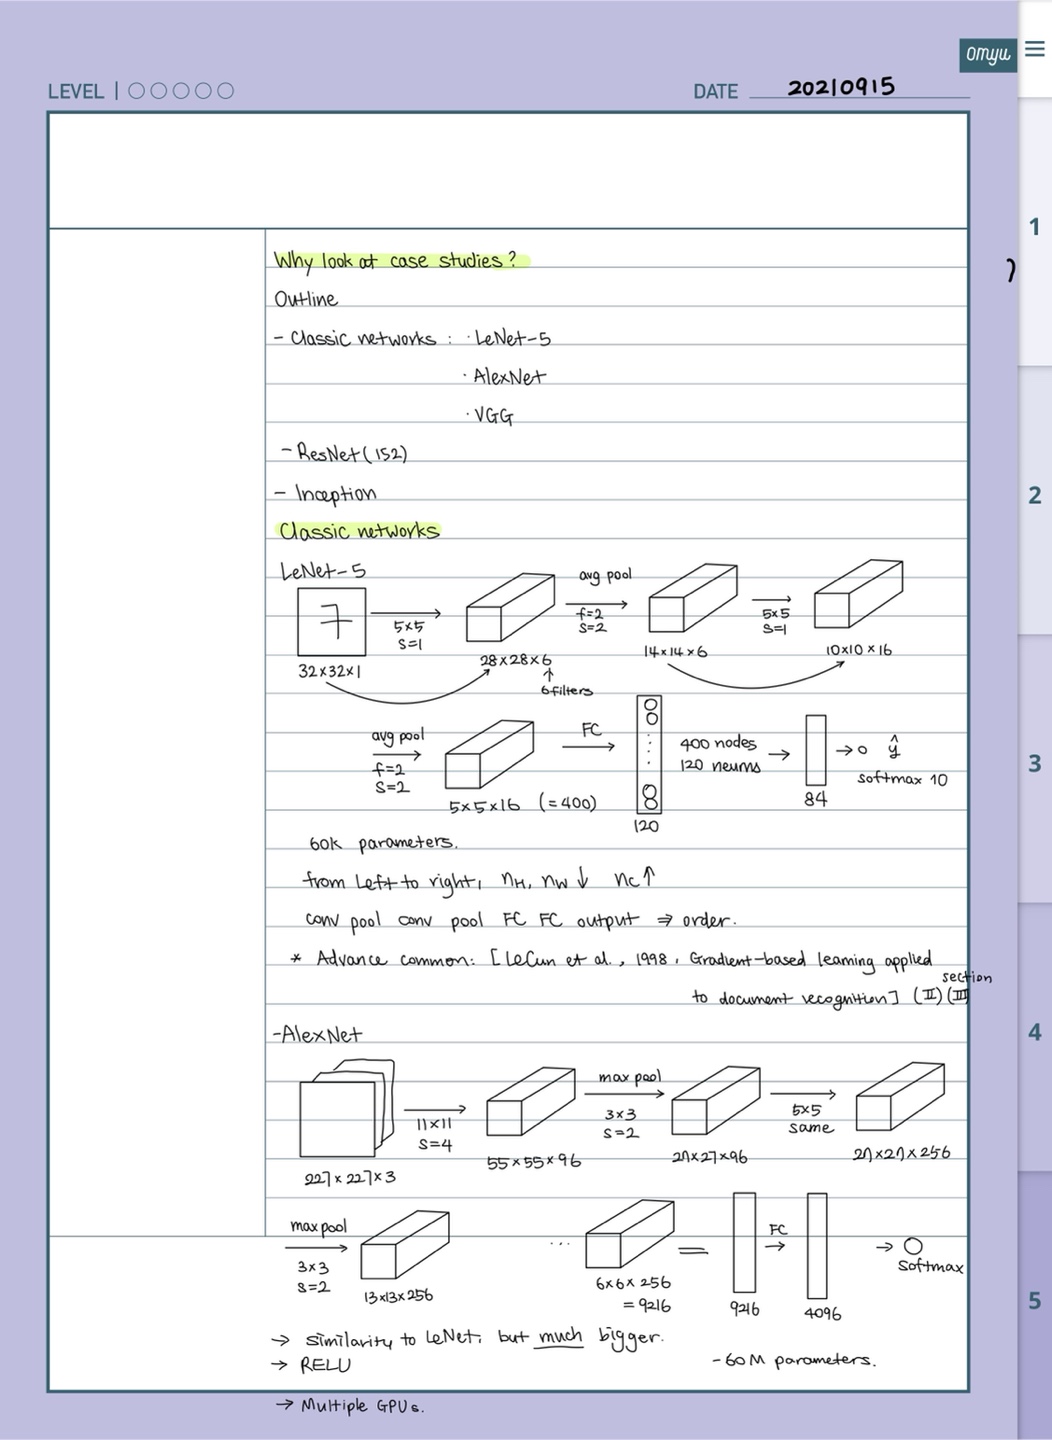 omyu
LEVEL
DATE 20210915
1
2
3
4
5
Why look at case studies?
Outline
- Classic networks : · LeNet-5
· AlexNet
· VGG
- ResNet(152)
- Inception
Classic networks
LeNet-5
7
32×32×1
5×5
s=1
28×28×6
↑
6 filters
avg pool
f=2
s=2
14×14×6
5×5
s=1
10×10×16
avg pool
f=2
s=2
5×5×16 (=400)
FC
120
400 nodes
120 neurns
84
ŷ
softmax 10
60k parameters.
from Left to right, nH, nW ↓ nC ↑
conv pool conv pool FC FC output ⇒ order.
* Advance common: [LeCun et al., 1998, Gradient-based learning applied
to document recognition] (II)(III
section
-AlexNet
227×227×3
11×11
s=4
55×55×96
max pool
3×3
s=2
27×27×96
5×5
same
27×27×256
max pool
3×3
s=2
13×13×256
...
6×6×256
= 9216
=
9216
FC
4096
→ ○
softmax
→ similarity to LeNet, but much bigger.
→ RELU
- 60M parameters.
→ Multiple GPUs.